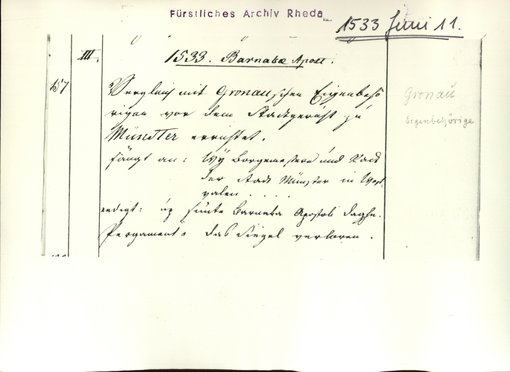 Fürstliches Archiv Rheda
1533 Juni 11.
III. 1533. Barnabae Apost.
157 Vergleich mit Gronau'schen Eigenbehö
rigen vor dem Stadtgericht zu
Münster errichtet.
fängt an: Wy Borgemestere und Raed
der Stadt Münster in West
valen . . . .
endigt: up sünte Barnaba Apostoli daghe.
Pergament. das Siegel verloren.
Gronau
Eigenbehörige